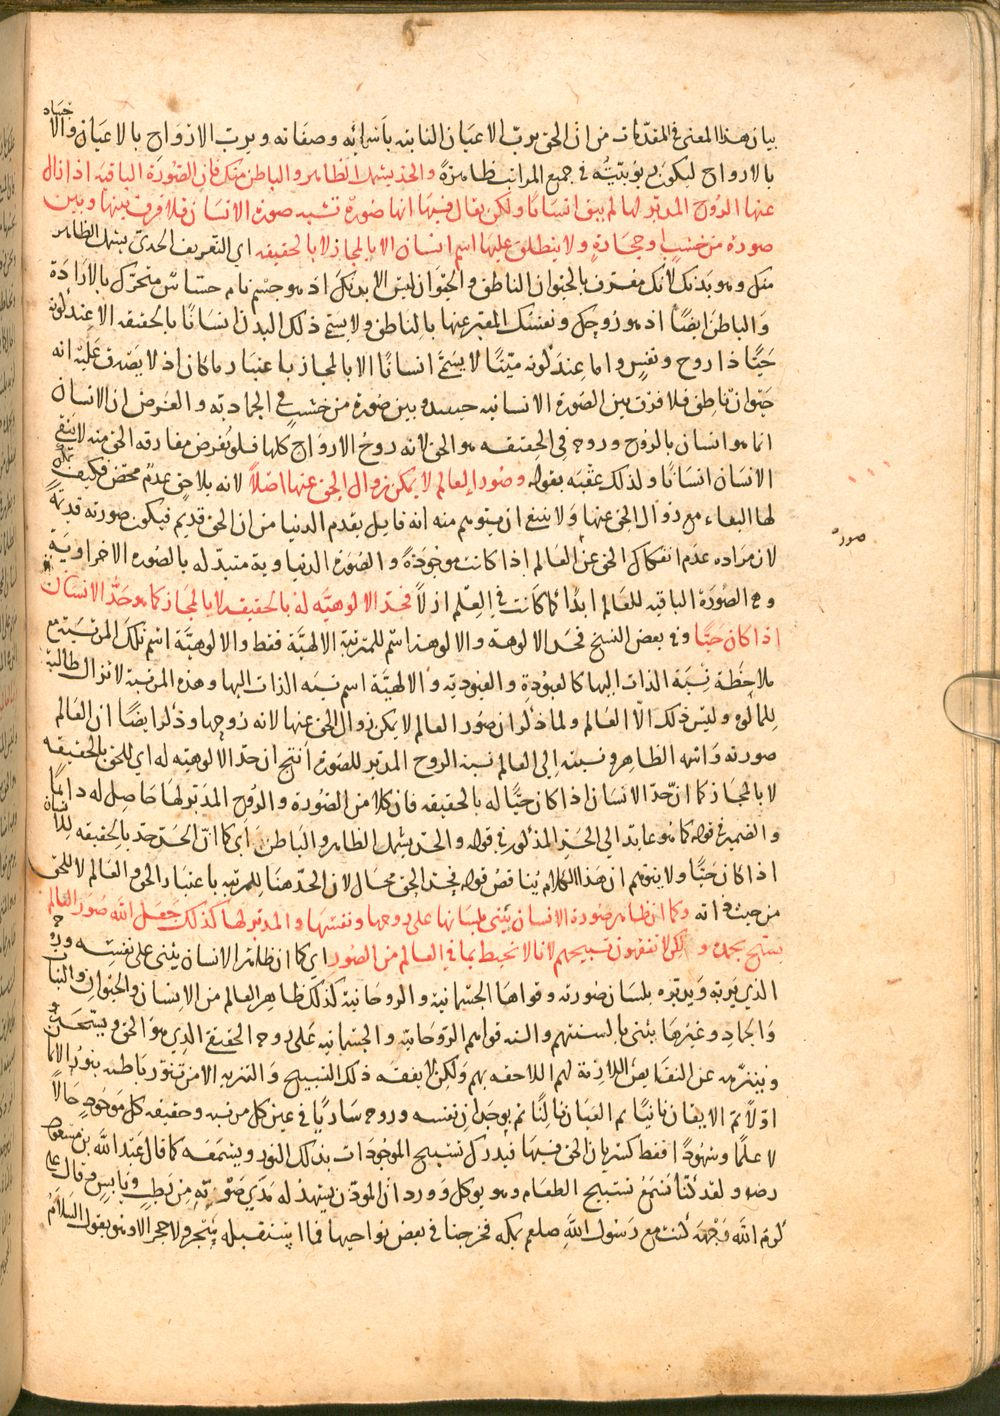 بيان هذا المعنى في المقدمات من ان الحق يرب الاعيان الثابتة باسمائه وصفاته ويرب الارواح بالاعيان والاجساد
بالارواح ليكون ربوبيته في جميع المراتب ظاهرة والحد يشمل الظاهر والباطن منك فان الصورة الباقية اذا زال
عنها الروح المدبر لها لم يبق انسانا ولكن يقال فيها انها صورة تشبه صورة الانسان فلا فرق بينها وبين
صورة من خشب او حجارة ولا ينطلق عليها اسم انسان الا بالمجاز لا بالحقيقة اي التعريف الحدي يشمل الظاهر
منك وهو بدنك لانك معرف بالحيوان الناطق والحيوان ليس الا بدنك اذ هو جسم نام حساس متحرك بالارادة
والباطن ايضا اذ هو روحك ونفسك المعبر عنها بالناطق ولا يسمى ذلك البدن انسانا بالحقيقة الا عند كونه
حيا ذا روح ونفس واما عند كونه ميتا لا يسمى انسانا الا بالمجاز باعتبار ما كان اذ لا يصدق عليه انه
حيوان ناطق فلا فرق بين الصورة الانسانية حينئذ وبين صورة من خشب في الجمادية والغرض ان الانسان
انما هو انسان بالروح وروحه في الحقيقة هو الحق لانه روح الارواح كلها فلو يفرض مفارقة الحق منه لا يبقى
الانسان انسانا ولذلك عقبه بقوله وصور العالم لا يمكن زوال الحق عنها اصلا لانه بلا حق عدم محض فكيف يمكن
لها البقاء مع زوال الحق عنها ولا ينبغي ان يتوهم منه انه قايل بقدم الدنيا من ان الحق قديم فيكون صورته قديمة
صورته
لان مراده عدم انفكاك الحق عن العالم اذا كانت موجودة والصورة الدنياوية متبدلة بالصورة الاخراوية
وهي الصورة الباقية للعالم ابدا كما كانت في العلم ازلا فحد الالوهية له بالحقيقة لا بالمجاز كما هو حد الانسان
اذا كان حيا وفي بعض النسخ فحد الالوهة والالوهة اسم للمرتبة الالهية فقط والالوهية اسم تلك المرتبة مع
ملاحظة نسبة الذات اليها كالعبودة والعبودية والالهية اسم نسبة الذات اليها وهذه المرتبة لا تزال طالبة
للمالوه وليس ذلك الا العالم ولما ذكر ان صور العالم لا يمكن زوال الحق عنها لانه روحها وذكر ايضا ان العالم
صورته واسمه الظاهر ونسبته الى العالم نسبة الروح المدبر للصورة انتج ان حد الالوهية له اي للحق بالحقيقة
لا بالمجاز كما ان حد الانسان اذا كان حيا له بالحقيقة فان كلا من الصورة والروح المدبر لها حاصل له دائما
والضمير في قوله كما هو عايد الى الحد المذكور في قوله والحد يشمل الظاهر والباطن اي كما ان الحد حد بالحقيقة للانسان
اذا كان حيا ولا يتوهم ان هذا الكلام يناقض قوله فحد الحق محال لان الحد هنا للمرتبة باعتبار الحق والعالم لا للحق
من حيث ذاته وكما ان ظاهر صورة الانسان يثنى بلسانها على روحها ونفسها والمدبر لها كذلك جعل الله صور العالم
يسبح بحمده ولكن لا تفقهون تسبيحهم لانا لا نحيط بما في العالم من الصور اي كما ان ظاهر الانسان يثنى على نفسه وروحه
الذي يربه ويدبره بلسان صورته وقواها الجسمانية والروحانية كذلك ظاهر العالم من الانسان والحيوان والنبات
والجماد وغيرها يثنى بالسنتهم والسنة قواهم الروحانية والجسمانية على روحه الحقيقي الذي هو الحق ويسبحه بحمده
وينزهه عن النقايص اللازمة لهم اللاحقة بهم ولكن لا يفقه ذلك التسبيح والتنزيه الا من تنور باطنه بنور الايمان
اولا ثم الايقان ثانيا ثم العيان ثالثا ثم بوجدان نفسه وروحه ساريا في عين كل مرتبة وحقيقة كل موجود حالا
لا علما وشهودا فقط كسريان الحق فيها فيدرك تسبيح الموجودات بذلك النور ويسمعه كما قال عبد الله بن مسعود
رضه ولقد كنا نسمع تسبيح الطعام وهو يوكل وورد ان المؤذن يشهد له مدى صوته من رطب ويابس وقال علي
كرم الله وجهه كنت مع رسول الله صلعم بمكة فخرجنا في بعض نواحيها فما استقبله شجر ولا حجر الا وهو يقول السلام